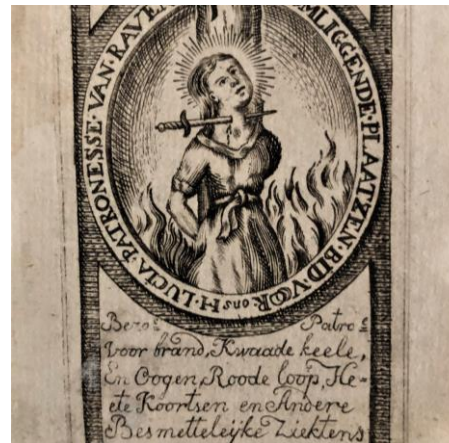 H·LUCIA·PATRONESSE·VAN·RAVE MLIGGENDE·PLAATZEN·BID·VOOR ons
Patro
voor brand, Kwaade keele,
En Oogen, Roode loop, He-
ete Koortsen en Andere
Besmetteleijke Ziektens